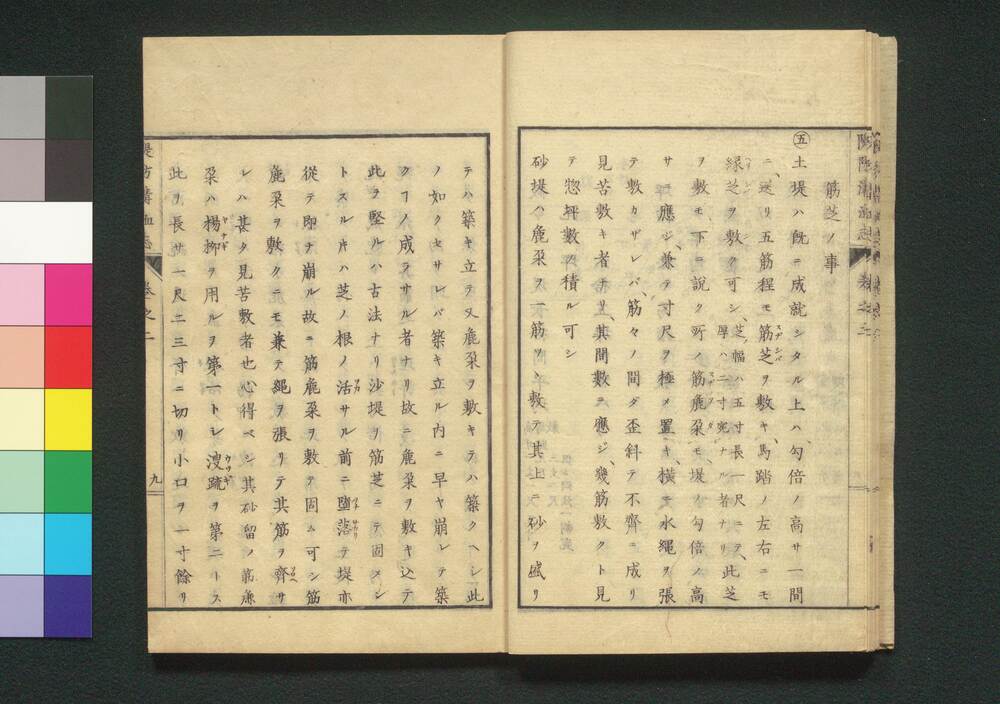 筋芝ノ事
㊄土堤ハ既ニ成就シタル上ハ勾倍ノ高サ一間
ニ、送リ五筋程モ筋芝ヲ敷キ、馬踏ノ左右ニモ
緑芝ヲ敷ク可シ、芝ノ幅ハ五寸長一尺ニテ、厚ハ二寸宛ナル者ナリ、此芝
ヲ敷モ、下ニ說ク所ノ筋麁朶モ、堤ノ勾倍ノ高
サニ應ジ、兼テ寸尺ヲ極メ置キ、橫テ水繩ヲ張
テ敷カザレバ、筋々ノ間ダ歪斜テ不齊ニ成リ
見苦敷キ者ナリ、其間數ニ應ジ、幾筋敷クト見
テ惣坪數ヲ積ル可シ
砂堤ハ麁朶ヲ一筋ツヽ敷テ其上ニ砂ヲ盛リ
テハ築キ立テ又麁朶ヲ敷キテハ築クヘシ此
ノ如クセサレバ築キ立ル內ニ早ヤ崩レテ築
クコノ成ラサル者ナリ故ニ麁朶ヲ敷キ込テ
此ヲ堅ルハ古法ナリ沙堤ヲ筋芝ニテ固メン
トスル片ハ芝ノ根ノ活サル前ニ墮落テ堤亦
從テ卽チ崩ル故ニ筋麁朶ヲ敷テ固ム可シ筋
麁朶ヲ敷クニモ兼テ繩ヲ張リテ其筋ヲ齊サ
レハ甚タ見苦敷者也心得ベシ其砂留ノ筋麁
朶ハ楊柳ヲ用ルヲ第一トシ溲疏ヲ第二トス
此ヲ長サ一尺二三寸ニ切リ小口ヲ一寸餘リ
卷之二
九